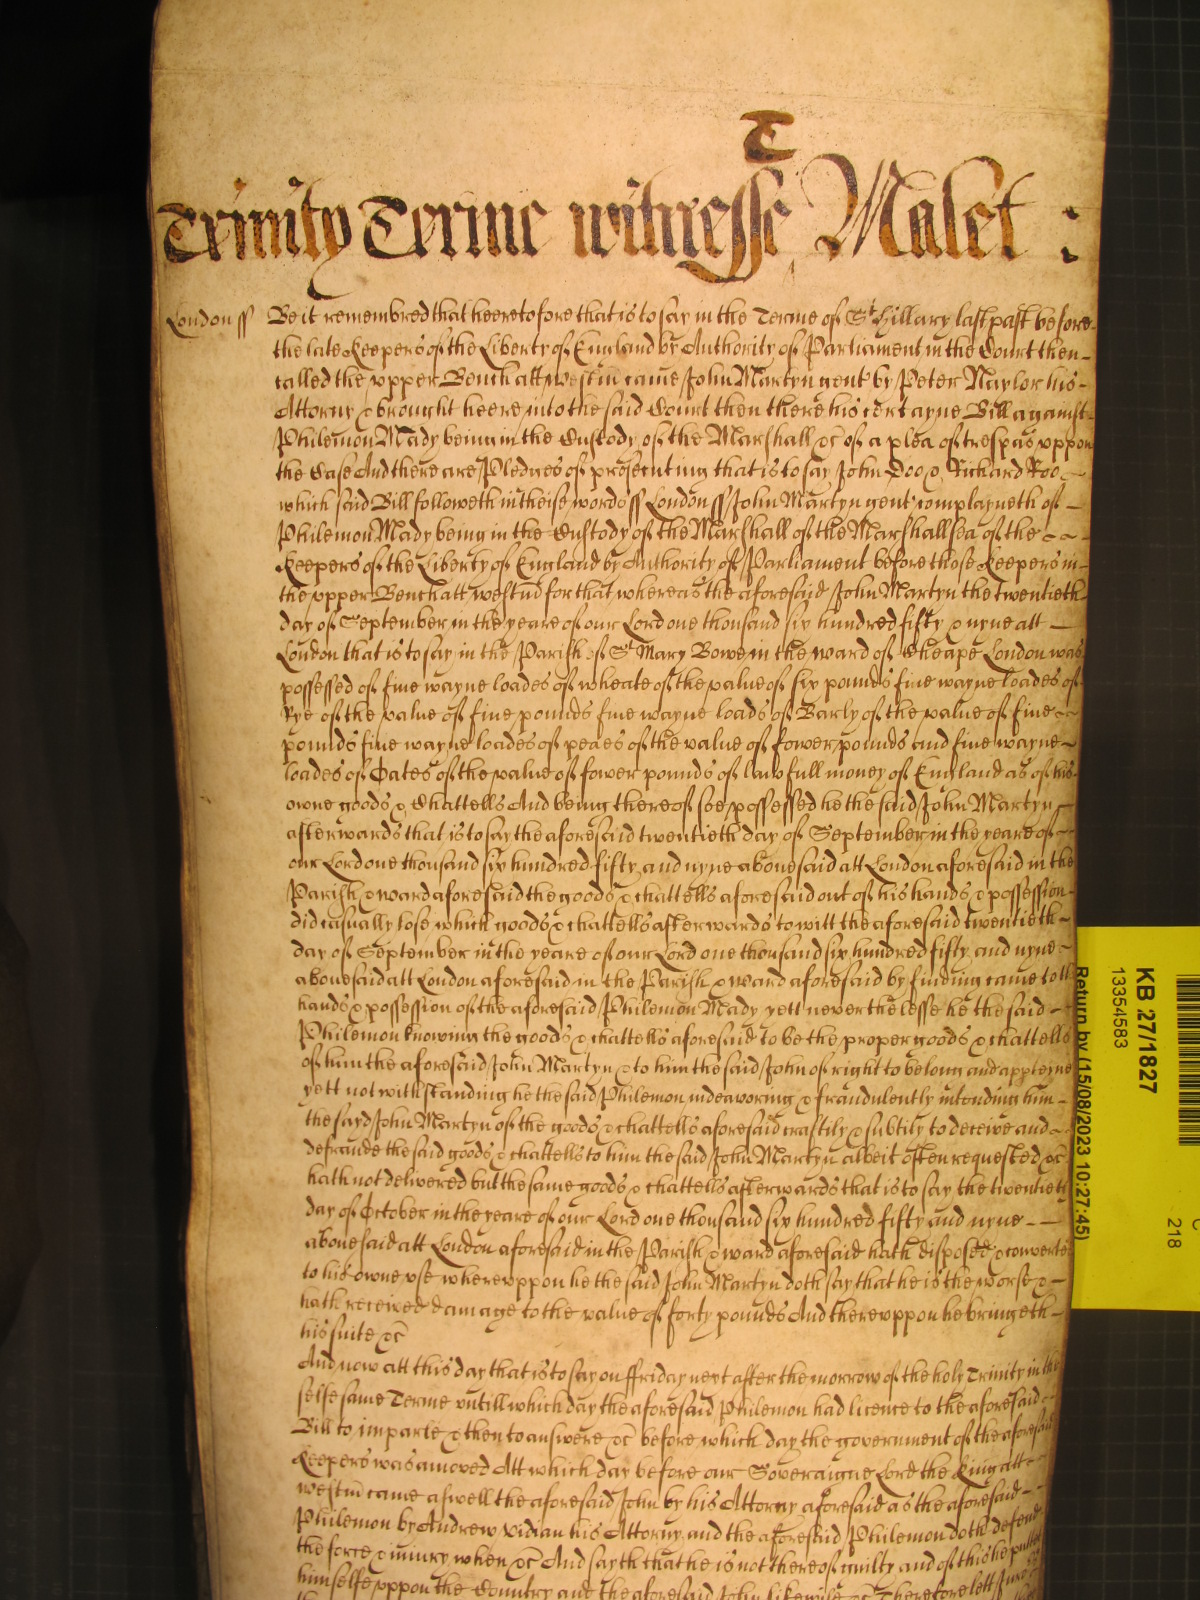 T
Trinity Terme witnesse Malet :
London ss Be it remembred that heeretofore that is to say in the Terme of St Hillary last past before
the late Keepers of the Liberty of England by Authority of Parliament in the Court then
called the vpper Bench att Westm came John Martyn gent by Peter Naylor his
Attorny & brought heere into the said Court then there his certayne Bill against
Philemon Mady being in the Custody of the Marshall &c of a plea of trespas vppon
the Case And there are Pledges of prosecuting that is to say John Doo & Richard Roo
which said Bill followeth in theise words ss London ss John Martyn gent complayneth of
Philemon Mady being in the Custody of the Marshall of the Marshallsea of the
Keepers of the Liberty of England by Authority of Parliament before those Keepers in
the vpper Bench att Westm for that whereas the aforesaid John Martyn the twentieth
day of September in the yeare of our Lord one thousand six hundred fifty & nyne att
London that is to say in the Parish of St Mary Bowe in the ward of Cheape London was
possessed of five wayne loades of wheate of the value of six pounds five wayne loades of
Rye of the value of five pounds five wayne loads of Barly of the value of five
pounds five wayne loades of peaes of the value of fower pounds and five wayne
loades of Oates of the value of fower pounds of lawfull money of England as of his
owne goods & Chattells And being thereof soe possessed he the said John Martyn
afterwards that is to say the aforesaid twentieth day of September in the yeare of
our Lord one thousand six hundred fifty and nyne abovesaid att London aforesaid in the
Parish & ward aforesaid the goods & chattells aforesaid out of his hands & possession
did casually lose which goods & chattells afterwards to witt the aforesaid twentieth
day of September in the yeare of our Lord one thousand six hundred fifty and nyne
abovesaid att London aforesaid in the Parish & ward aforesaid by finding came to the
hands & possession of the aforesaid Philemon Mady yett neverthelesse he the said
Philemon knowing the goods & chattells aforesaid to be the proper goods & chattells
of him the aforesaid John Martyn & to him the said John of right to belong and apperteyne
yett notwithstanding he the said Philemon indeavoring & fraudulently intending him
the sayd John Martyn of the goods & chattells aforesaid craftily & subtily to deceive and
defraude the said goods & chattells to him the said John Martyn albeit often requested &c
hath not delivered but the same goods & chattells afterwards that is to say the twentieth
day of October in the yeare of our Lord one thousand six hundred fifty and nyne
abovesaid att London aforesaid in the Parish & ward aforesaid hath disposed & converted
to his owne vse wherevppon he the said John Martyn doth say that he is the worse &
hath received damage to the value of forty pounds And therevppon he bringeth
his suite &c
And now att this day that is to say on ffriday next after the morrow of the holy Trinity in the
selfe same Terme vntill which day the aforesaid Philemon had licence to the aforesaid
Bill to imparle & then to answere &c before which day the government of the aforesaid
Keepers was amoved Att which day before our Soveraigne Lord the King att
Westm came aswell the aforesaid John by his Attorny aforesaid as the aforesaid
Philemon by Andrew Vidian his Attorny and the aforesaid Philemon doth defend
the force & iniury when &c And sayth that he is not thereof guilty and of this he putteth
himselfe vppon the Country and the aforesaid John likewise &c Therefore lett
KB 27/1827
13354583
Return by (15/08/2023 10:27:45)
218